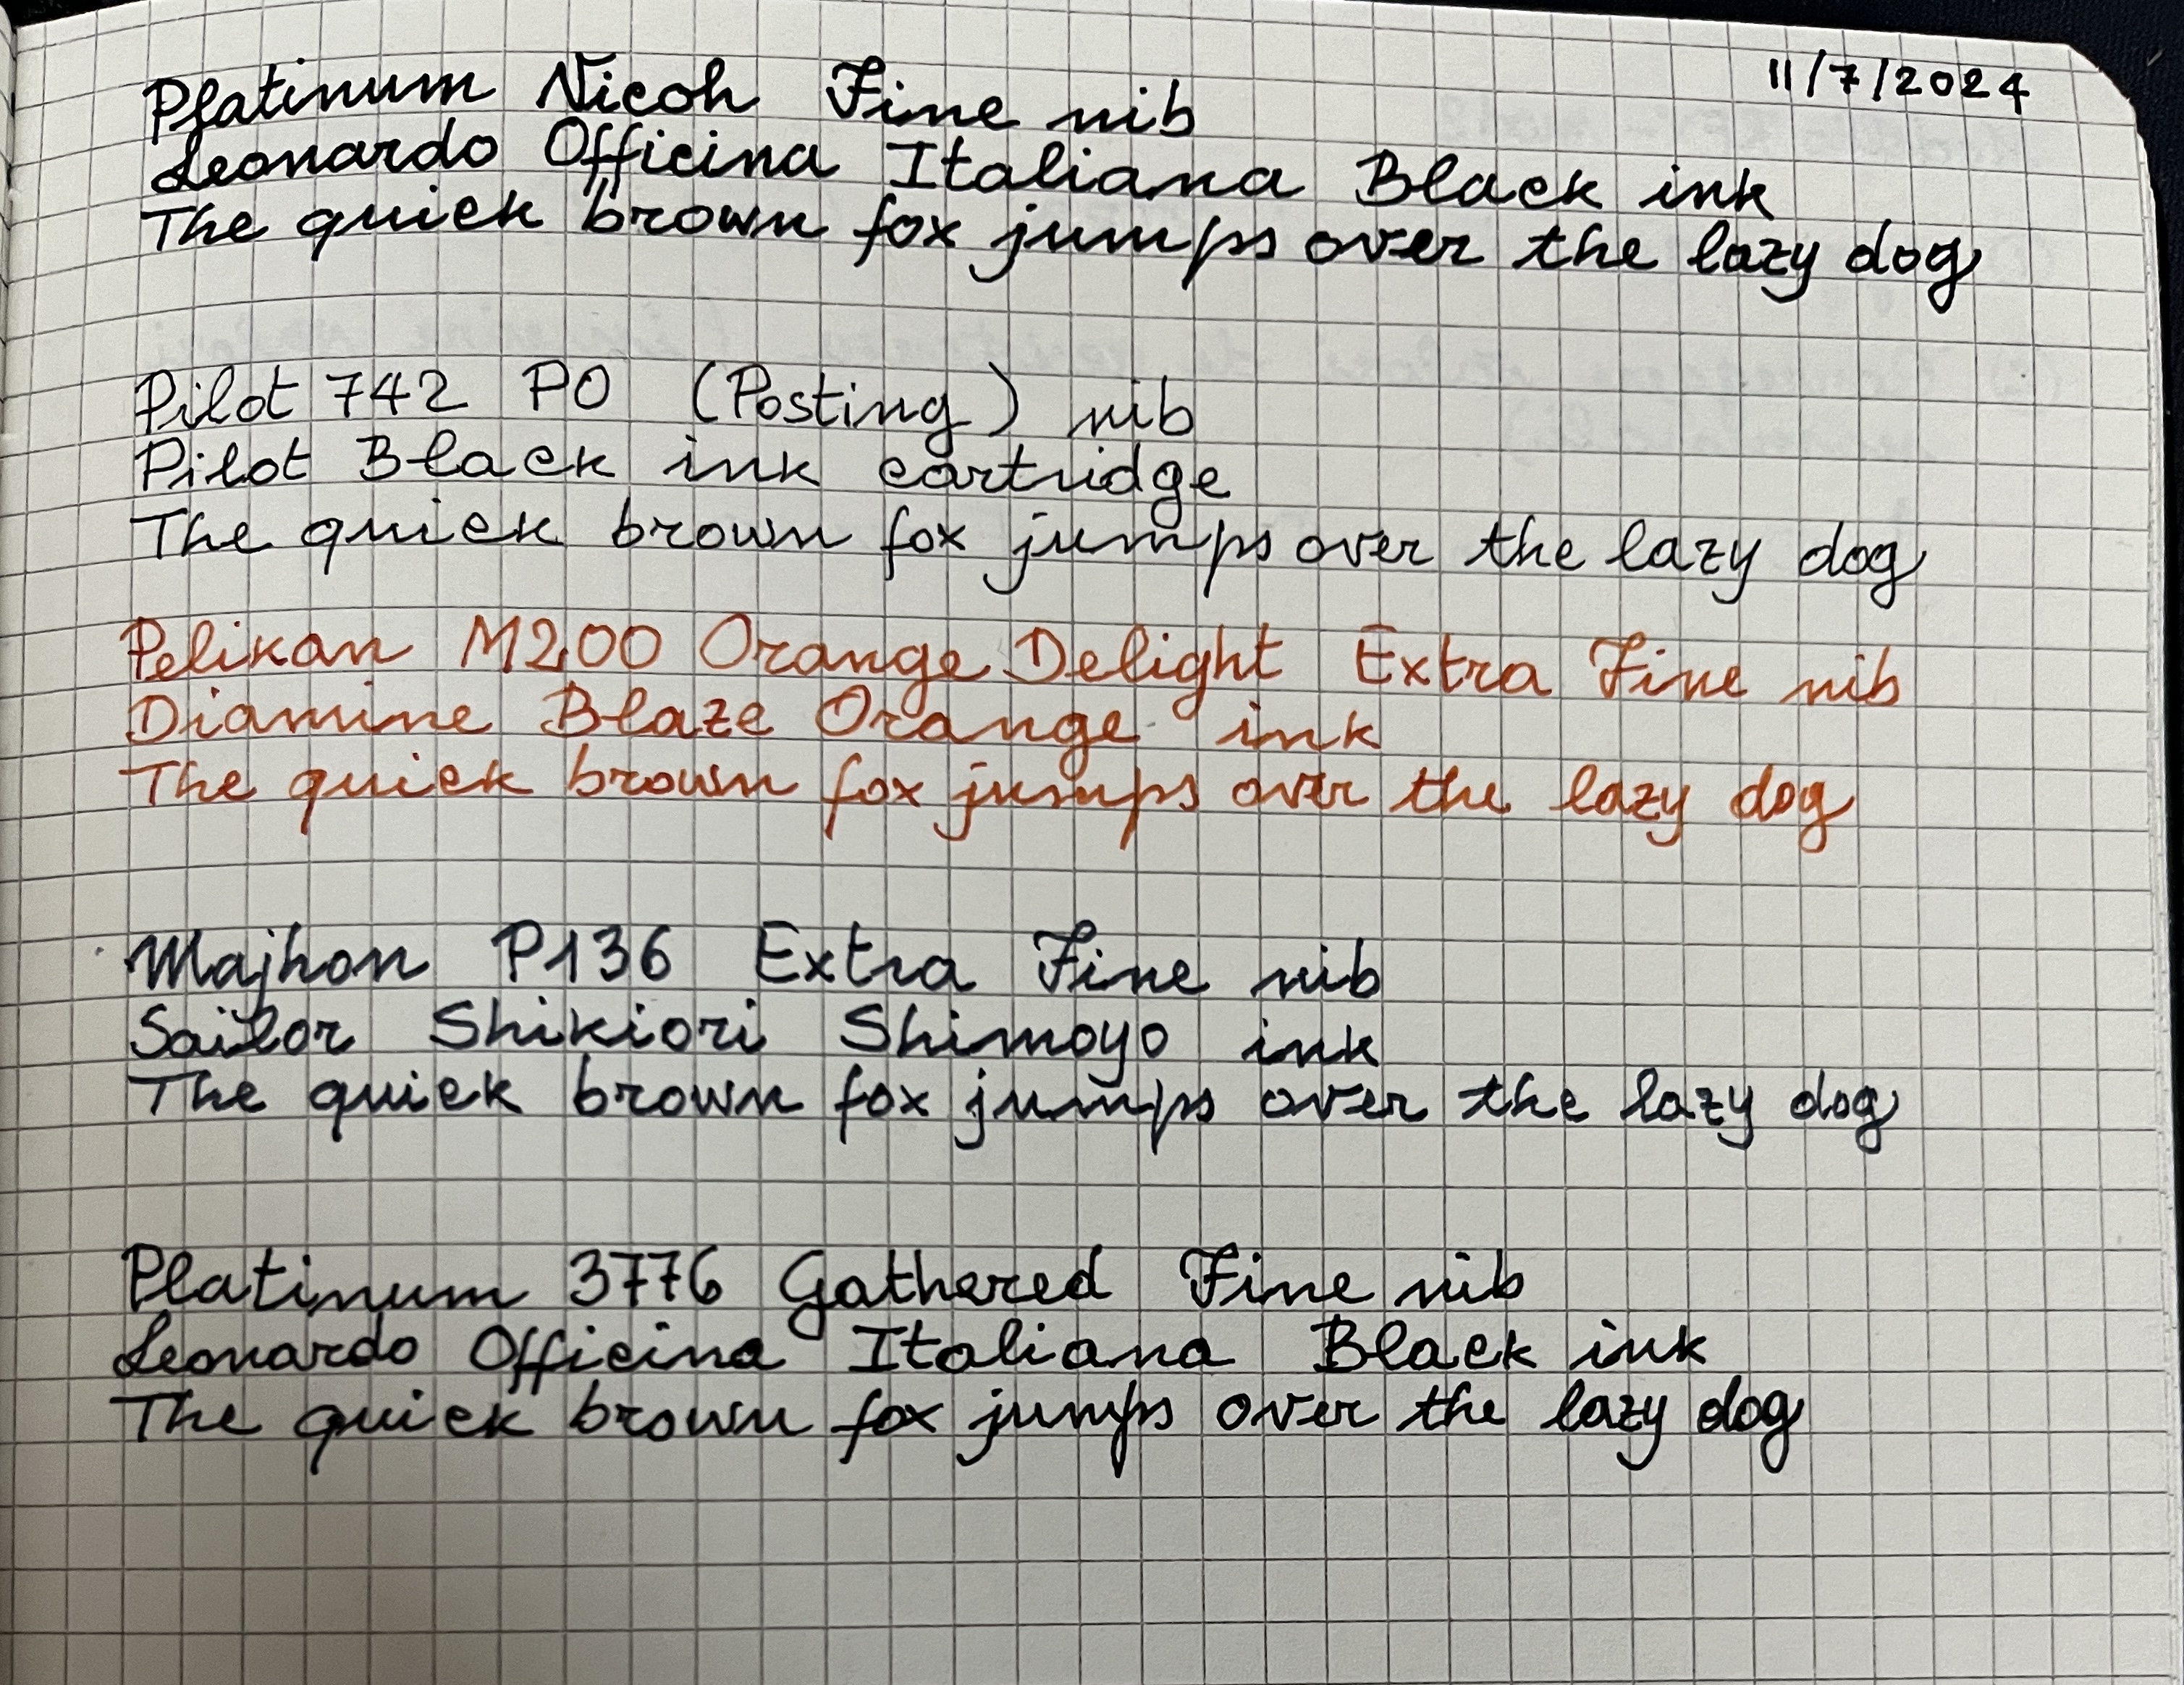 11/7/2024
Platinum Nicoh Fine nib
Leonardo Officina Italiana Black ink
The quick brown fox jumps over the lazy dog
Pilot 742 PO (Posting) nib
Pilot Black ink cartridge
The quick brown fox jumps over the lazy dog
Pelikan M200 Orange Delight Extra Fine nib
Diamine Blaze Orange ink
The quick brown fox jumps over the lazy dog
Majhon P136 Extra Fine nib
Sailor Shikiori Shimoyo ink
The quick brown fox jumps over the lazy dog
Platinum 3776 Gathered Fine nib
Leonardo Officina Italiana Black ink
The quick brown fox jumps over the lazy dog